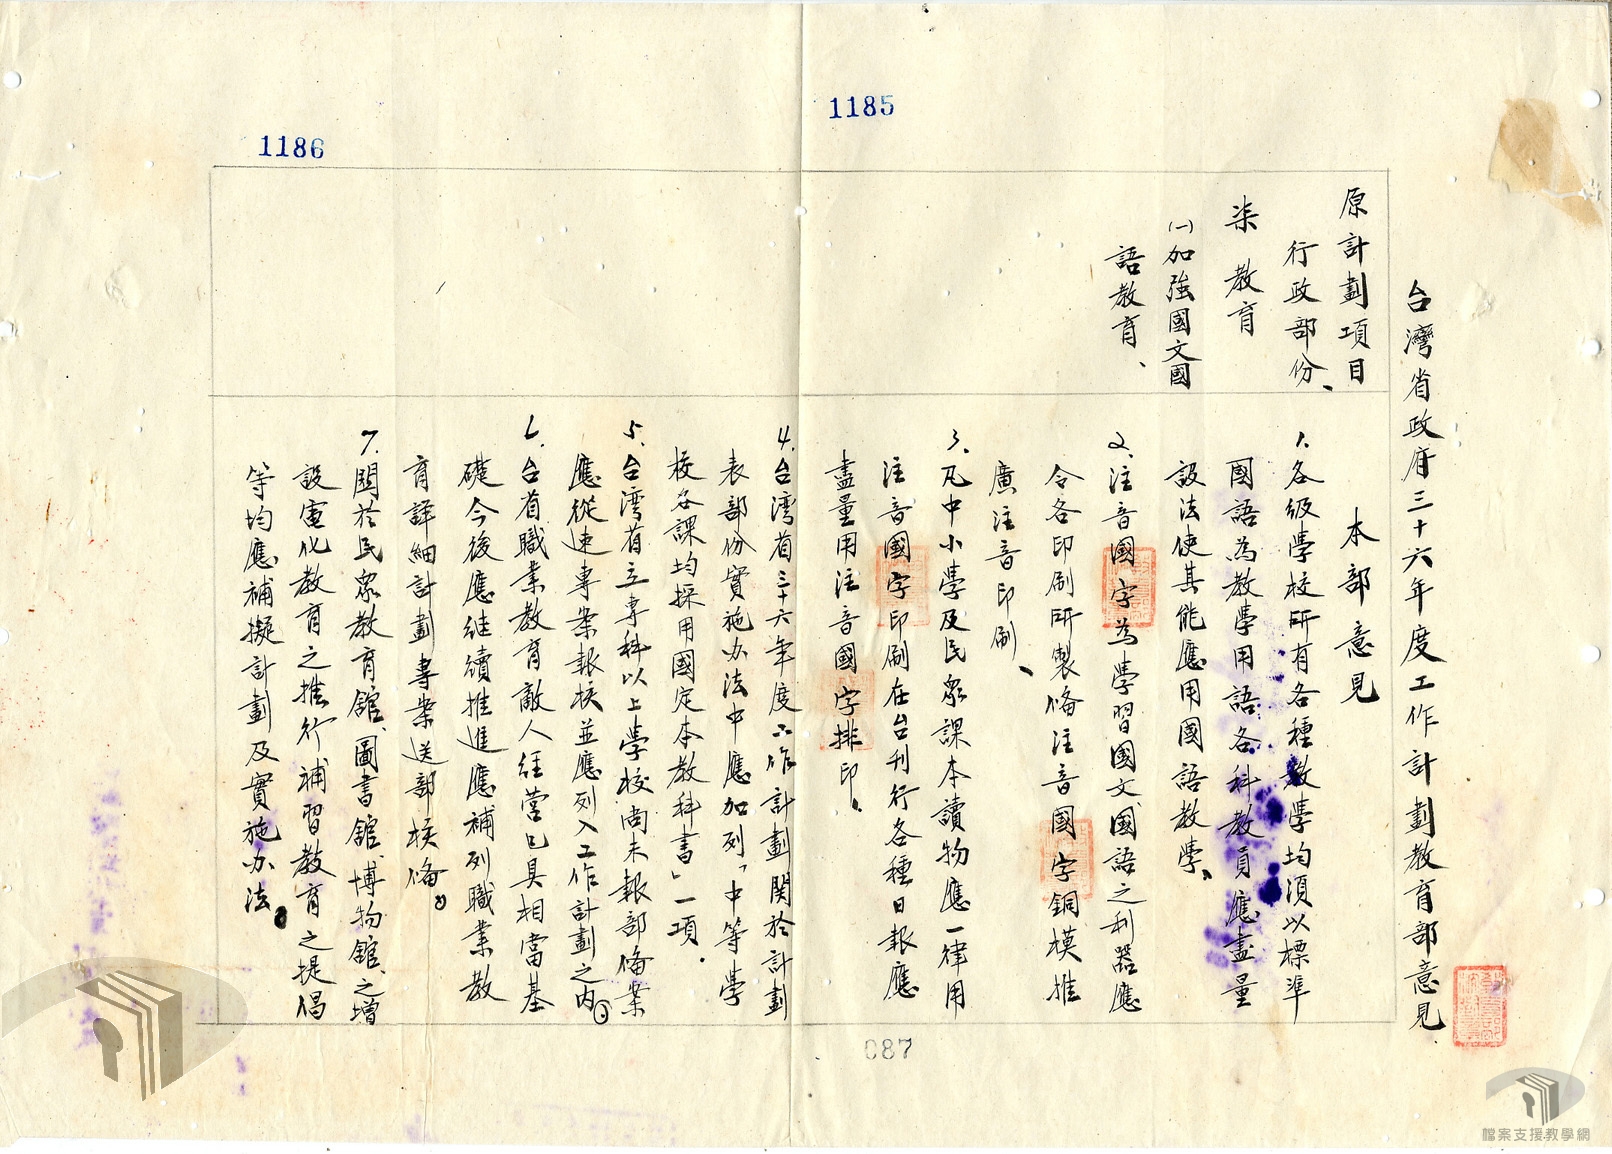 1185
1186
台灣省政府三十六年度工作計劃教育部意見
原計劃項目
行政部份、
柒 教育
(一)加強國文國
語教育、
本部意見
1.各級學校所有各種教學均須以標準
國語為教學用語各科教員應盡量
設法使其能應用國語教學、
2.注音國字為學習國文國語之利器應
令各印刷所製俻注音國字銅模推
廣注音印刷、
3.凡中小學及民眾課本讀物應一律用
注音國字印刷在台刊行各種日報應
盡量用注音國字排印、
4.台灣省三十六年度工作計劃関於計劃
表部份實施办法中應加列「中等學
校各課均採用國定本教科書」一項.
5.台灣省立專科以上學校尚未報部俻案
應從速專案報核並應列入工作計劃之內
6.台省職業教育敵人經營已具相當基
礎今後應継續推進應補列職業教
育詳細計劃專案送部核俻。
7.關於民眾教育舘、圖書舘、博物舘、之增
設電化教育之推行補習教育之提倡
等均應補擬計劃及實施办法。
087
檔案支援教學網